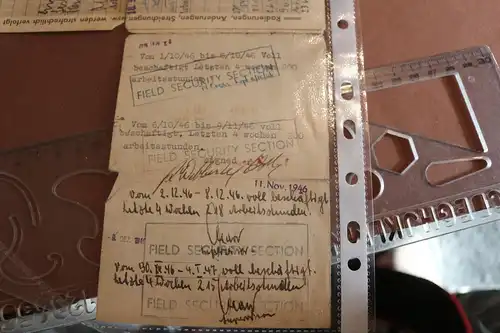 Rodierungen, Änderungen, Streichungen, werden strafrechtlich verfolgt
Vom 1/10/46 bis 5/10/46 Voll
beschäftigt Letzten 4 wochen 200
arbeitsstunden
FIELD SECURITY SECTION
Vom 6/10/46 bis 9/11/46 voll
beschäftigt, Letzten 4 wochen 200
arbeitsstunden.
FIELD SECURITY SECTION
signed
11. Nov. 1946
Vom 2.12.46 - 8.12.46. voll beschäftigt
letzte 4 Wochen 218 Arbeitsstunden
DEZ
FIELD SECURITY SECTION
vom 30. 46 - 4.I.47 voll beschäftigt.
letzte 4 Wochen 215 Arbeitsstunden
FIELD SECURITY SECTION